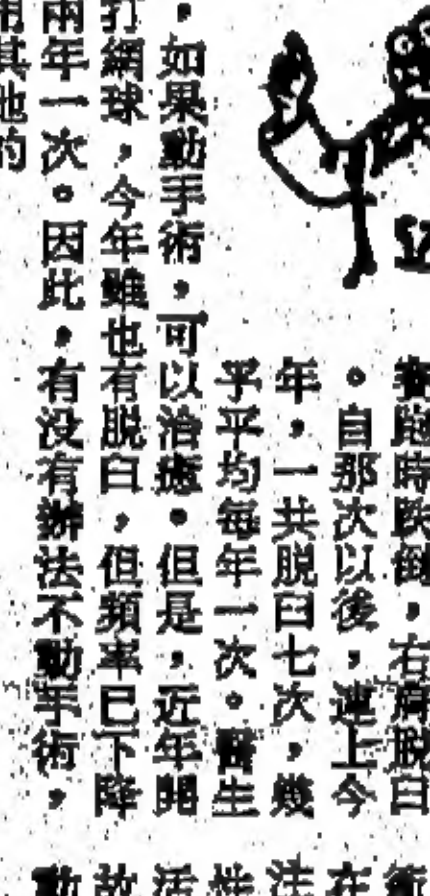 賽跑時跌倒，右肩脫臼
。自那次以後，連上今
年，一共脫臼七次，幾
乎平均每年一次。醫生
，如果動手術，可以治癒。但是，近年開
打網球，今年雖也有脫臼，但頻率已下降
兩年一次。因此，有沒有辦法不動手術，
用其他的
在
法
性
活
故
動